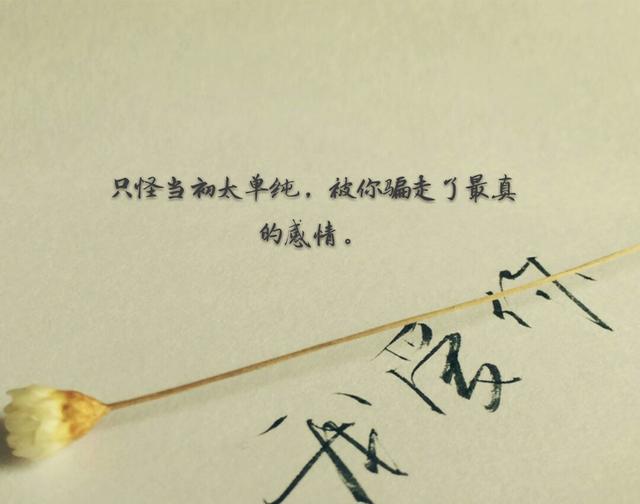 只怪当初太单纯，被你骗走了最真
的感情。
我你